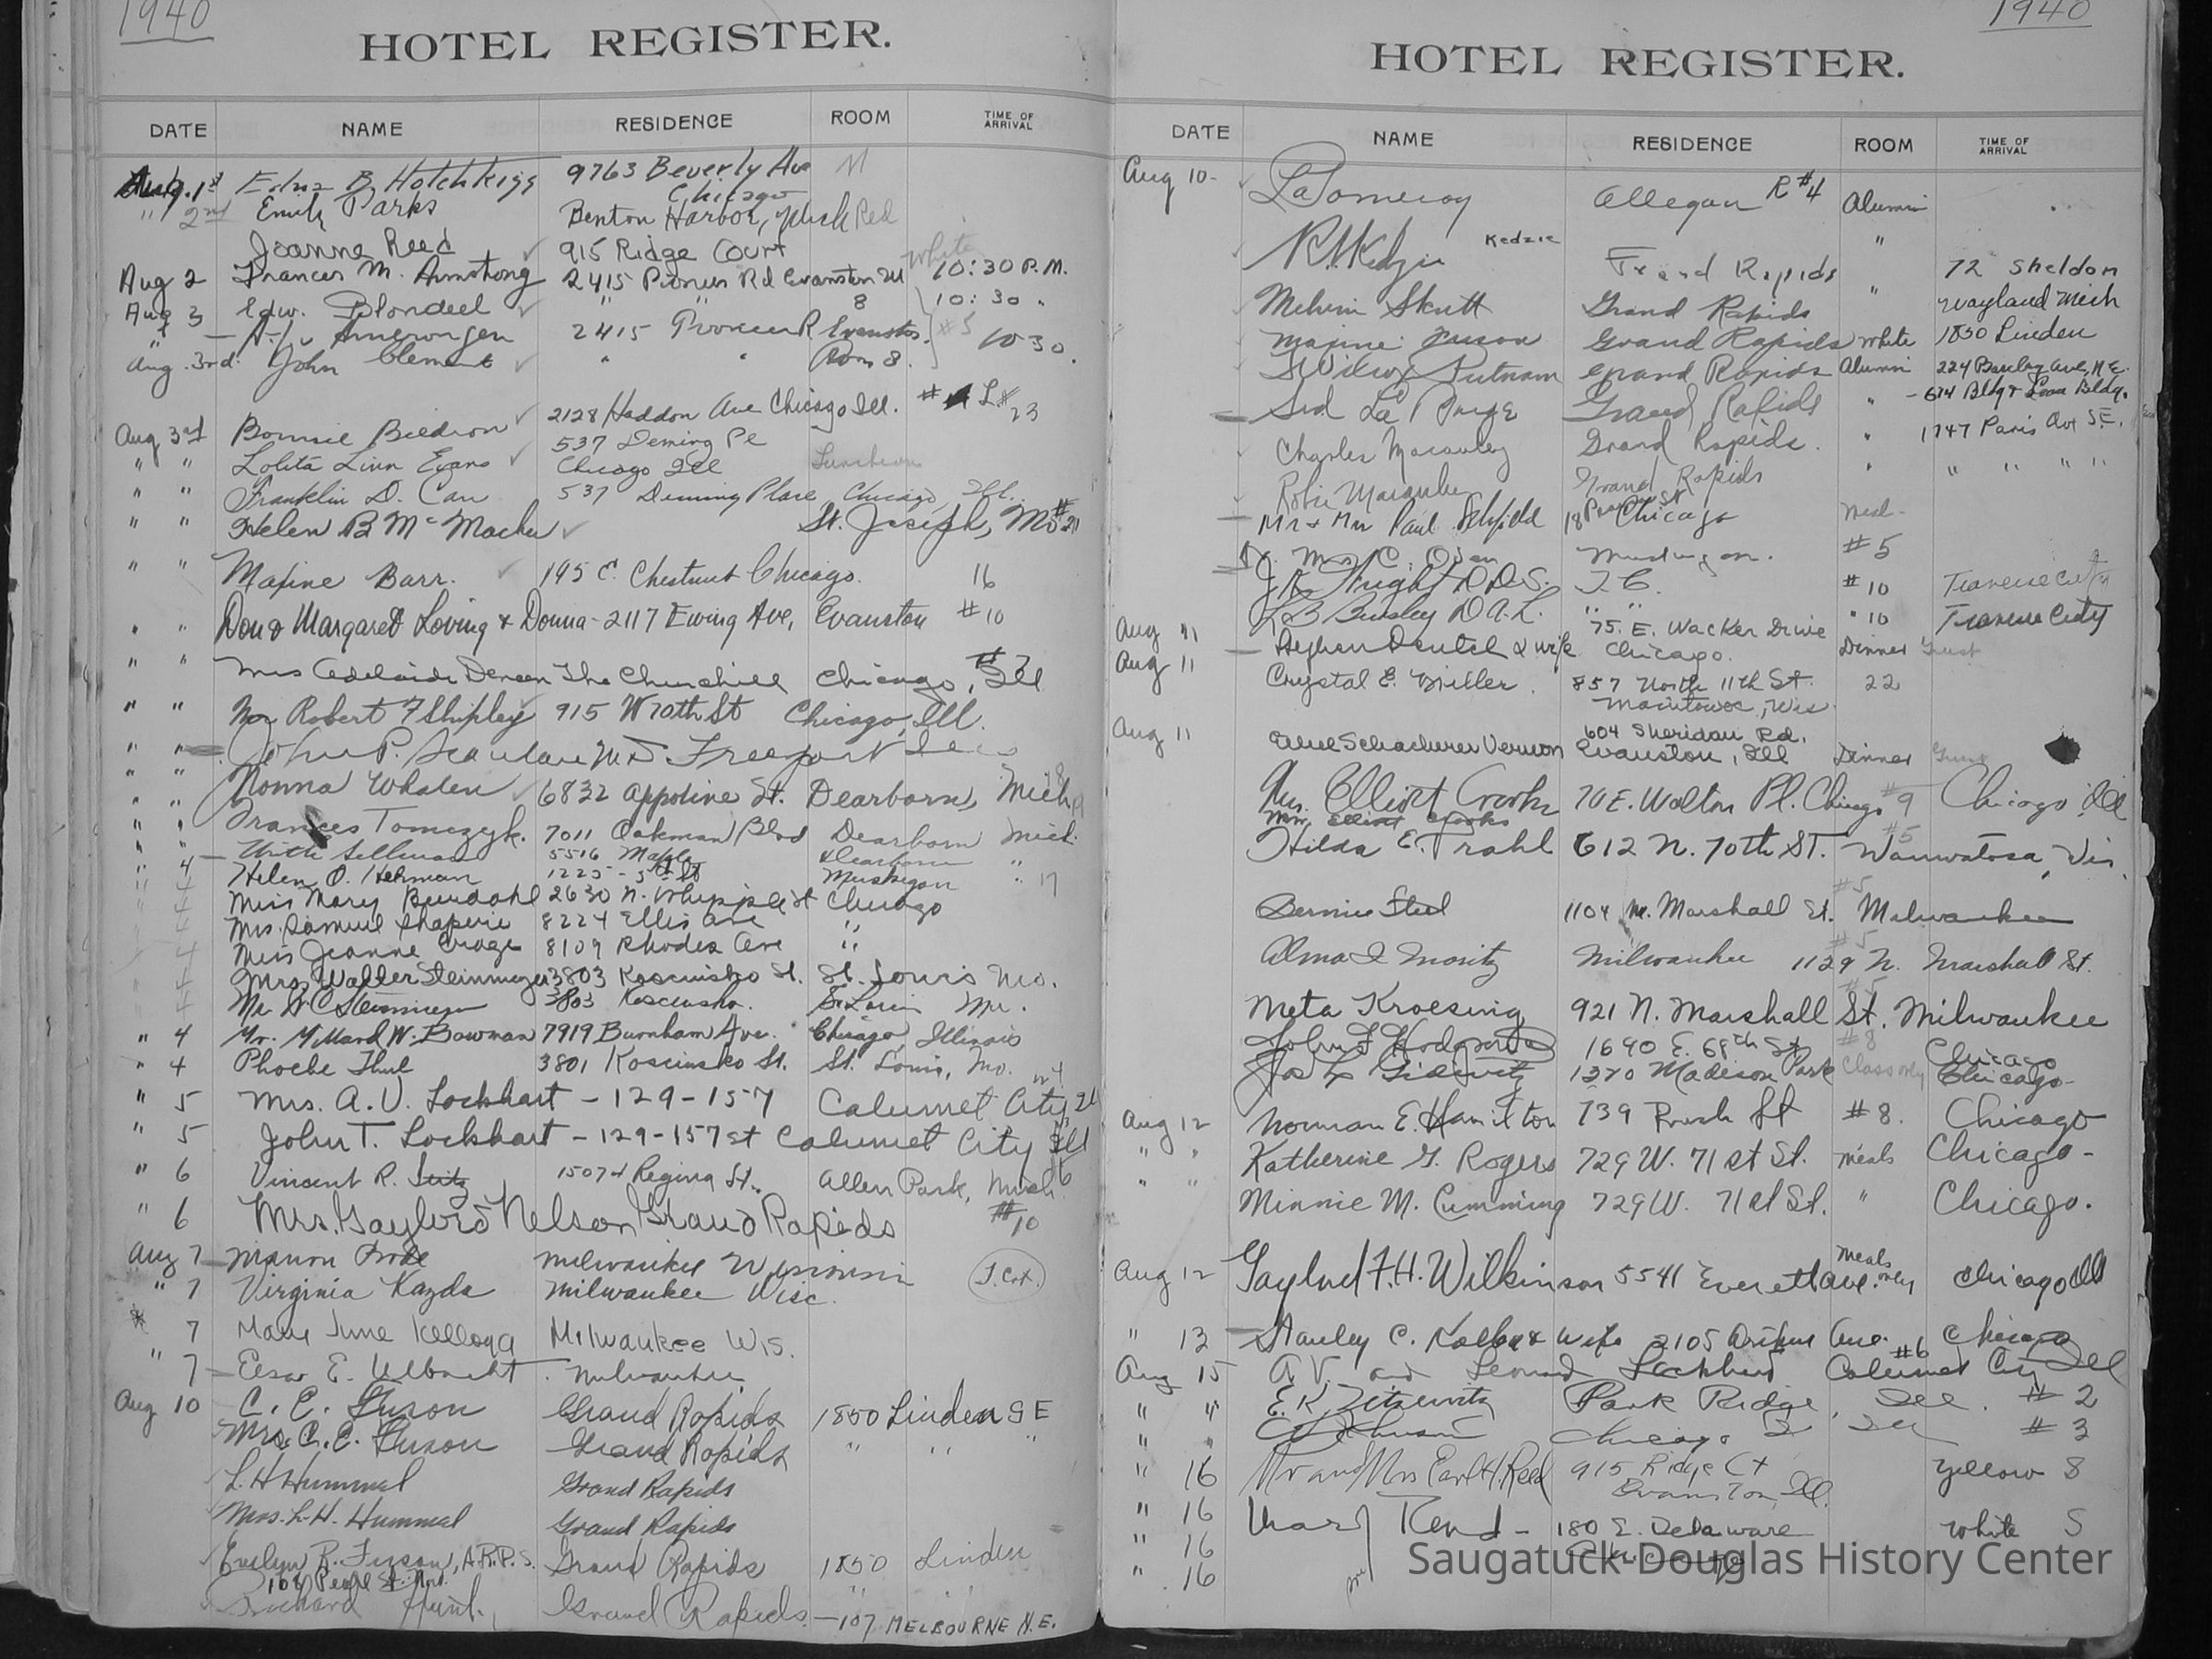 1940
HOTEL REGISTER.
DATE NAME RESIDENCE ROOM TIME OF ARRIVAL
Aug. 1st Edna B. Hotchkiss 9763 Beverly Ave M
Chicago
" 2nd Emily Parks Benton Harbor, Mich Red
Joanne Reed 915 Ridge Court White
Aug 2 Frances M. Armstrong 2415 Pioneer Rd Evanston Ill 10:30 P.M.
Aug 3 Edw. Blondeel " " 8 10:30 "
" 2415 Pioneer R Evanston #5 10 30.
Aug. 3rd. John Clement " " Room 8.
2128 Haddon Ave Chicago Ill. # L# 23
Aug 3rd Bonnie Biedron 537 Deming Pl
" " Lolita Linn Evans Chicago Ill Luncheon
" " Franklin D. Carr 537 Deming Place Chicago, Ill.
" " Helen B Mc Macken St. Joseph, Mo #21
" " Maxine Barr. 195 E. Chestnut Chicago. 16
" " Don & Margaret Loving & Donna - 2117 Ewing Ave, Evanston #10
" " Mrs Adelaide Deneen The Churchill Chicago, Ill #7
" " Mr Robert F Shipley 915 W 70th St Chicago, Ill.
" " John P. Scanlan MD Freeport
" " Norma Whalen 6832 Appoline St. Dearborn, Mich
" " Frances Tomczyk. 7011 Oakman Blvd Dearborn Mich.
" " Sellman 5516 Maple Dearborn "
" 4 Helen O. Hehman 1225 - 5th St Muskegon " 17
" 4 Miss Mary Burdahl 2630 N. Whipple St Chicago
4 Mrs. Samuel Shapiro 8224 Ellis Ave "
4 Miss Jeanne 8109 Rhodes Ave "
4 Mrs. Walter Steinmeyer 3803 Kosciusko St. St. Louis Mo.
4 Mr W C Steinmeyer 3803 Kosciusko. St Louis Mo.
" 4 Mr. Millard W. Bowman 7919 Burnham Ave. Chicago, Illinois
" 4 Phoebe Thul 3801 Kosciusko St. St. Louis, Mo.
" 5 Mrs. A. V. Lockhart - 129 - 157 Calumet City
" 5 John T. Lockhart - 129 - 157 st Calumet City Ill
" 6 Vincent R. Seitz 15074 Regina St. Allen Park, Mich 6
" 6 Mrs. Gaylord Nelson Grand Rapids #10
Aug 7 Marion Milwaukee Wisconsin J. Cox.
" 7 Virginia Kazda Milwaukee Wisc.
" 7 Marie June Kellogg Milwaukee Wis.
" 7 E. Ulbricht. Milwaukee
Aug 10 C. E. Fuson Grand Rapids 1850 Linden SE
Mrs. C. E. Fuson Grand Rapids " " "
L. H Hummel Grand Rapids
Mrs. L. H. Hummel Grand Rapids
Evelyn B. Fuson, A.R.P.S. Grand Rapids 1850 Linden
107 Pearl St. N.W.
Richard Hunt. Grand Rapids. - 107 MELBOURNE N.E.
1940
HOTEL REGISTER.
DATE NAME RESIDENCE ROOM TIME OF ARRIVAL
Aug 10 - La Pomeroy Allegan R #4 Alumni
R. Kedzie Kedzie Grand Rapids " 72 Sheldon
Melvin Skutt Grand Rapids " Wayland Mich
Maxine Fuson Grand Rapids White 1850 Linden
Wilcox Putnam Grand Rapids Alumni 224 Barclay Ave, N.E.
Sid La Grand Rapids " - 614 Bldg & Loan Bldg.
Charles Macauley Grand Rapids. " 1747 Paris Ave S.E.
Robie Macauley Grand Rapids " " " " "
Mr & Mrs Paul 18 Pearson St Chicago Meal -
Mrs C. Olsen Muskegon. #5
J. R. Wright D.D.S. T.C. #10 Traverse City
L B Bursley D.A.L. " " " 10 Traverse City
Aug 11 Dentel & wife 75. E. Wacker Drive Chicago. Dinner Guest
Aug 11 Crystal E. Miller. 857 North 11th St. 22
Manitowoc, Wis
Aug 11 604 Sheridan Rd.
Schacherer Vernon Evanston, Ill Dinner Guest
Mrs. Elliott Crooks 70 E. Walton Pl. Chicago #9 Chicago Ill
Mrs. Elliott Crooks
Hilda E. Prahl 612 N. 70th ST. #5 Wauwatosa, Wis.
Bernice Steel 1104 N. Marshall St. #5 Milwaukee
Alma I Moritz Milwaukee 1129 N. Marshall St. #5
Meta Kroesing 921 N. Marshall St. Milwaukee #5
John F. 1640 E. 69th St #8 Chicago
Jos L Gidwitz 1370 Madison Park Class only Chicago -
Aug 12 Norman E. Hamilton 739 Rush St #8. Chicago
" " Katherine G. Rogers 729 W. 71st St. Meals Chicago -
" " Minnie M. Cumming 729 W. 71st St. " Chicago.
Aug 12 Gaylord F. H. Wilkinson 5541 Everett Ave. Meals only Chicago Ill
" 13 Stanley C. & Wife 2105 Arthur Ave. Chicago
Aug 15 A. V. and Leonard Lockhart #6 Calumet City Ill
" " E. K. Zitzewitz Park Ridge, Ill. #2
" " Chicago Ill #3
" 16 Mr and Mrs Earl H. Reed 915 Ridge Ct Yellow 8
Evanston, Ill.
" 16 - 180 E. Delaware White 5
" 16 Chicago
" 16
Saugatuck-Douglas History Center